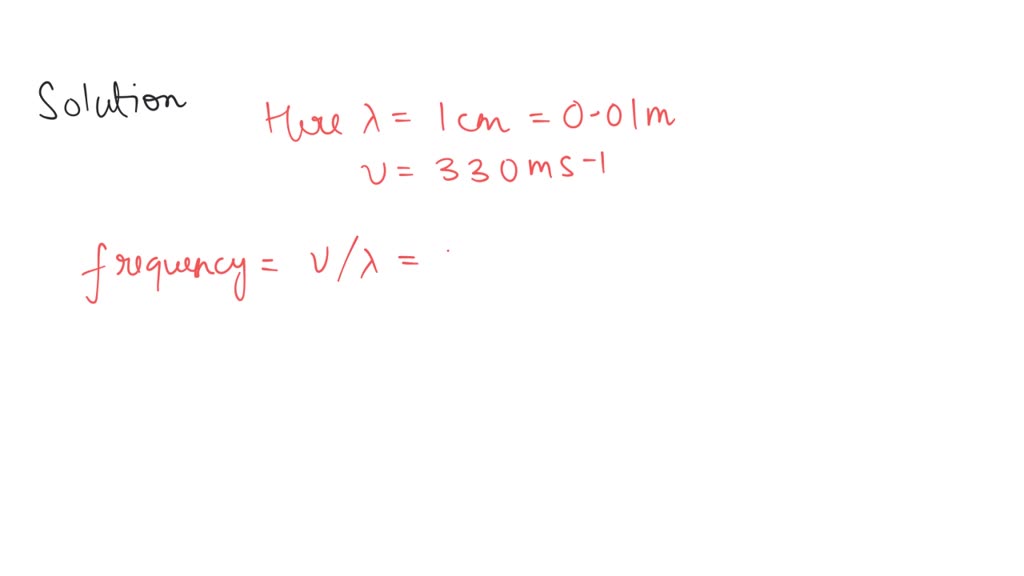 Solution
Here λ = 1 cm = 0.01 m
v = 330 ms-1
frequency = v/λ =